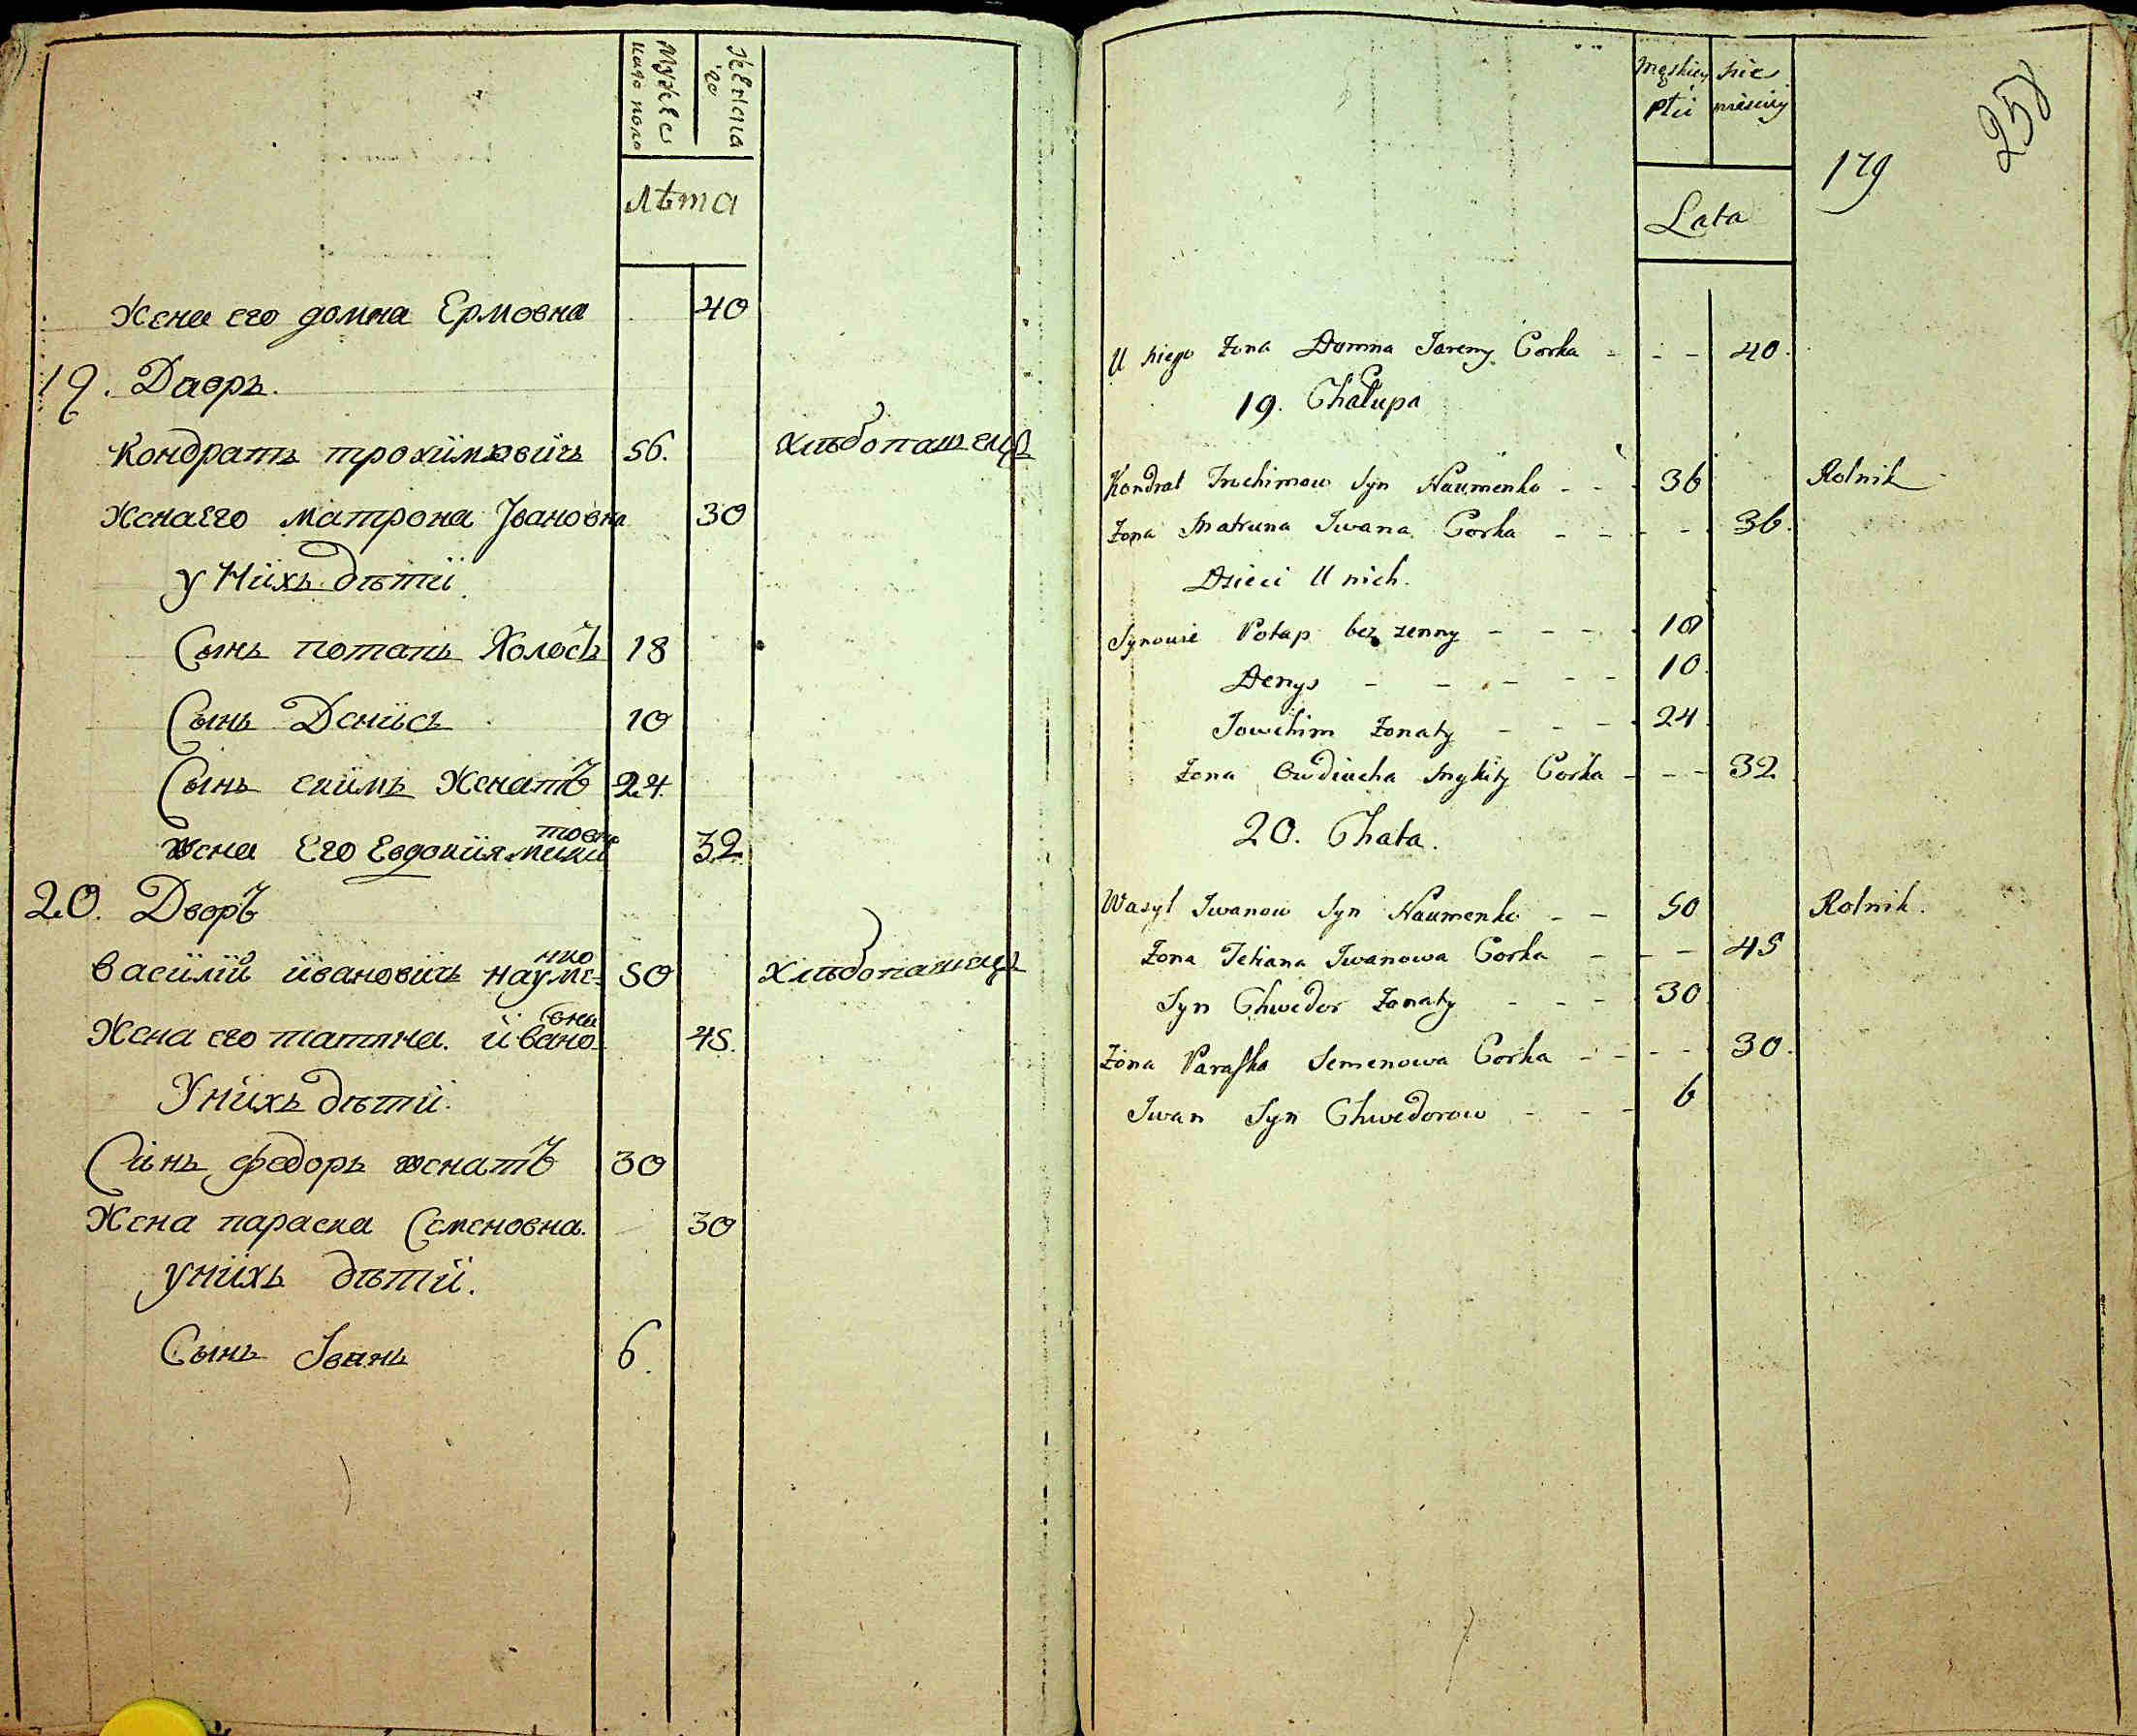 Мужес
каго пола
Женска
го
Лѣта
Жена его домна Ермовна 40
19. Дворъ.
Кондратъ трохимовичъ 56. хлѣбопашецъ
Жена его матрона Iвановна 30
у Нихъ дѣти.
Сынъ потапъ Холостъ 18
Сынъ Денисъ 10
Сынъ екимъ Женатъ 24.
жена Его Евдокия мики
товна 32.
20. Дворъ
Василий ивановичъ науме=
нко 50 хлѣбопашецъ
Жена его татяна. ивано=
вна 45.
Унихъ дѣти.
Синъ федоръ женатъ 30
Жена параска Семеновна. 30
унихъ дѣти.
Сынъ Iванъ 6.
męskiey
płci
Lata
179
258
U niego Żona Domna Jaremy Corka - - - 40.
19. Chałupa
Kondrat Trochimow Syn Naumenko - - - 36 Rolnik
Żona Matruna Iwana Corka - - - - 36.
Dzieci U nich.
Synowie Potap bez zenny - - - - 18
Denys - - - - - 10.
Jowchim Żonaty - - - 24.
Żona Owdiucha Mykity Corka - - - 32
20. Chata.
Wasyl Iwanow Syn Naumenko - - 50 Rolnik.
Żona Tetiana Iwanowa Corka - - - 45
Syn Chwedor Żonaty - - - 30
Żona Paraska Semenowa Corka - - - - 30.
Iwan Syn Chwedorow - - - 6